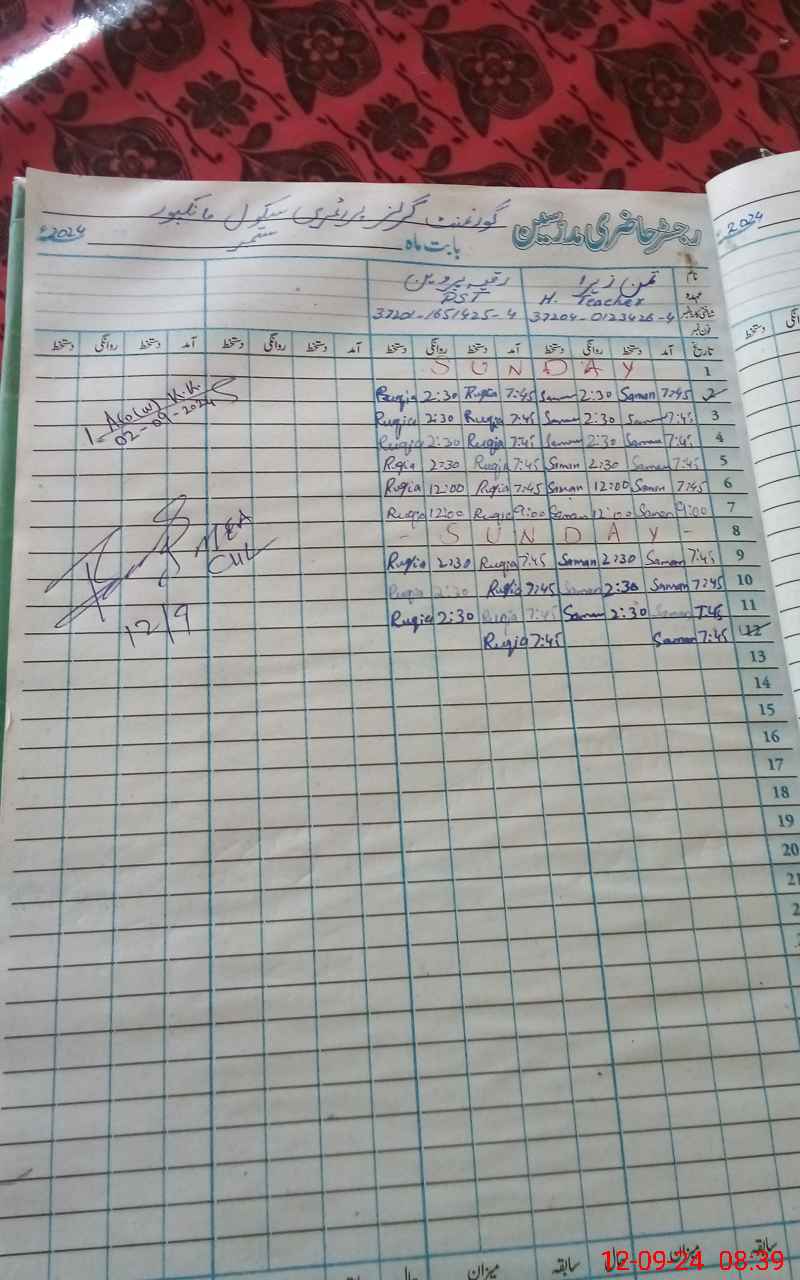 رجسٹر حاضری مدرسین گورنمنٹ گرلز پرائمری سکول مانکپور
بابت ماہ ستمبر 2024ء
نام ثمن زہرا رقیہ پروین
عہدہ H. Teacher PST
شناختی کارڈ نمبر 37204-0123426-4 37201-1651425-4
فون نمبر
تاریخ آمد دستخط روانگی دستخط آمد دستخط روانگی دستخط آمد دستخط روانگی دستخط آمد دستخط روانگی دستخط
1 SUNDAY
2 7:45 Saman 2:30 Saman 7:45 Ruqia 2:30 Ruqia
3 7:45 Saman 2:30 Saman 7:45 Ruqia 2:30 Ruqia
4 7:45 Saman 2:30 Saman 7:45 Ruqia 2:30 Ruqia
5 7:45 Saman 2:30 Saman 7:45 Ruqia 2:30 Ruqia
6 7:45 Saman 12:00 Saman 7:45 Ruqia 12:00 Ruqia
7 9:00 Saman 12:00 Saman 9:00 Ruqia 12:00 Ruqia
8 - SUNDAY -
9 7:45 Saman 2:30 Saman 7:45 Ruqia 2:30 Ruqia
10 7:45 Saman 2:30 Saman 7:45 Ruqia 2:30 Ruqia
11 7:45 Saman 2:30 Saman 7:45 Ruqia 2:30 Ruqia
12 7:45 Saman 7:45 Ruqia
13
14
15
16
17
18
19
20
21
02-09-2024
MEA
CHL
12/9
سابقہ میزان حال سابقہ میزان حال
2024
روانگی دستخط
12-09-24 08:39